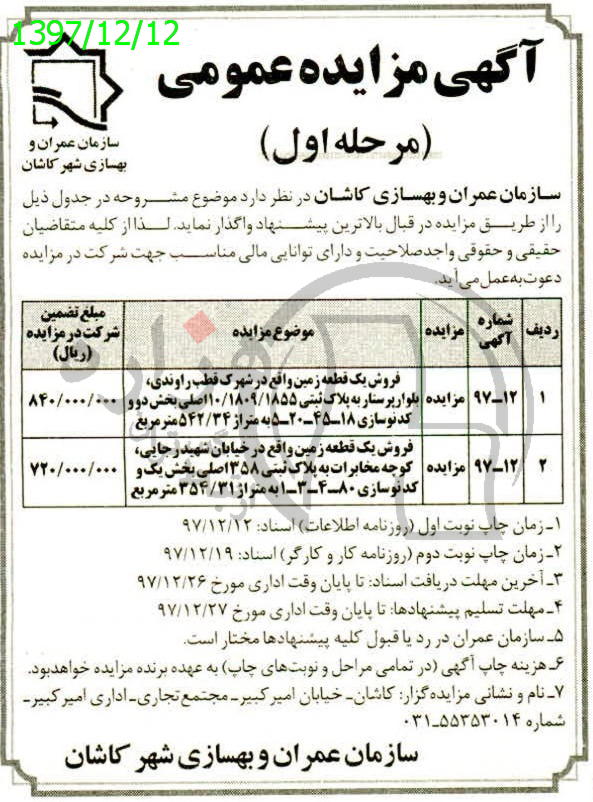 1397/12/12
آگهی مزایده عمومی
(مرحله اول)
سازمان عمران و
بهسازی شهر کاشان
سازمان عمران و بهسازی کاشان در نظر دارد موضوع مشروحه در جدول ذیل
را از طریق مزایده در قبال بالاترین پیشنهاد واگذار نماید. لذا از کلیه متقاضیان
حقیقی و حقوقی واجد صلاحیت و دارای توانایی مالی مناسب جهت شرکت در مزایده
دعوت به عمل می آید.
ردیف شماره آگهی مزایده موضوع مزایده مبلغ تضمین شرکت در مزایده (ریال)
۱ ۱۲-۹۷ مزایده فروش یک قطعه زمین واقع در شهرک قطب راوندی،
بلوار پرستار به پلاک ثبتی ۱۰/۱۸۰۹/۱۸۵۵ اصلی بخش دو و
کد نوسازی ۱۸-۴۵-۲۰-۵ به متراژ ۵۴۲/۳۴ متر مربع ۸۴۰/۰۰۰/۰۰۰
۲ ۱۲-۹۷ مزایده فروش یک قطعه زمین واقع در خیابان شهید رجایی،
کوچه مخابرات به پلاک ثبتی ۳۵۸ اصلی بخش یک و
کد نوسازی ۸۰-۴-۳-۱ به متراژ ۳۵۴/۳۱ متر مربع ۷۲۰/۰۰۰/۰۰۰
۱- زمان چاپ نوبت اول (روزنامه اطلاعات) اسناد: ۹۷/۱۲/۱۲
۲- زمان چاپ نوبت دوم (روزنامه کار و کارگر) اسناد: ۹۷/۱۲/۱۹
۳- آخرین مهلت دریافت اسناد: تا پایان وقت اداری مورخ ۹۷/۱۲/۲۶
۴- مهلت تسلیم پیشنهادها: تا پایان وقت اداری مورخ ۹۷/۱۲/۲۷
۵- سازمان عمران در رد یا قبول کلیه پیشنهادها مختار است.
۶- هزینه چاپ آگهی (در تمامی مراحل و نوبت‌های چاپ) به عهده برنده مزایده خواهد بود.
۷- نام و نشانی مزایده گزار: کاشان- خیابان امیرکبیر- مجتمع تجاری- اداری امیرکبیر-
شماره ۵۵۳۵۳۰۱۴-۰۳۱
سازمان عمران و بهسازی شهر کاشان